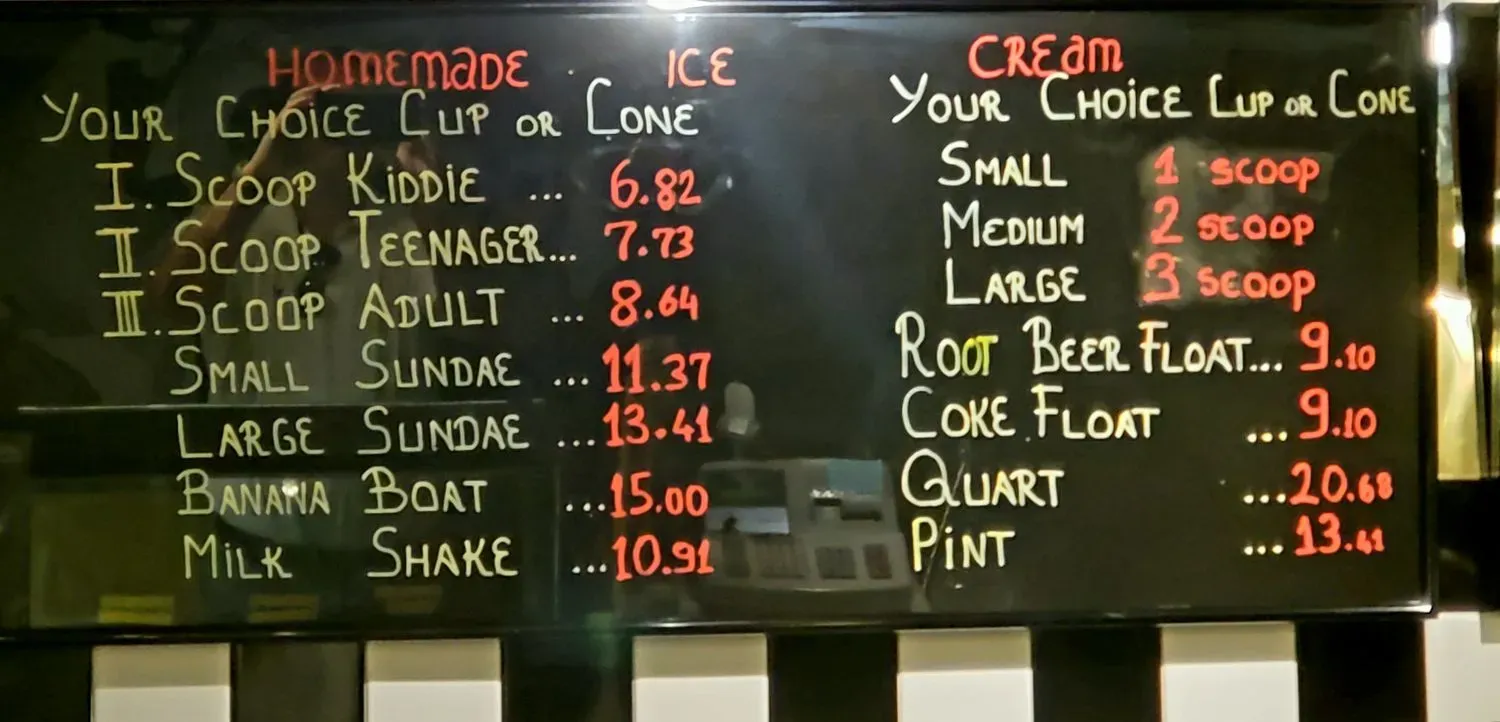 HOMEMADE ICE CREAM
YOUR CHOICE CUP OR CONE
I. SCOOP KIDDIE ... 6.82
II. SCOOP TEENAGER... 7.73
III. SCOOP ADULT ... 8.64
SMALL SUNDAE ... 11.37
LARGE SUNDAE ... 13.41
BANANA BOAT ... 15.00
MILK SHAKE ... 10.91
YOUR CHOICE CUP OR CONE
SMALL 1 SCOOP
MEDIUM 2 SCOOP
LARGE 3 SCOOP
ROOT BEER FLOAT... 9.10
COKE FLOAT ... 9.10
QUART ... 20.68
PINT ... 13.41